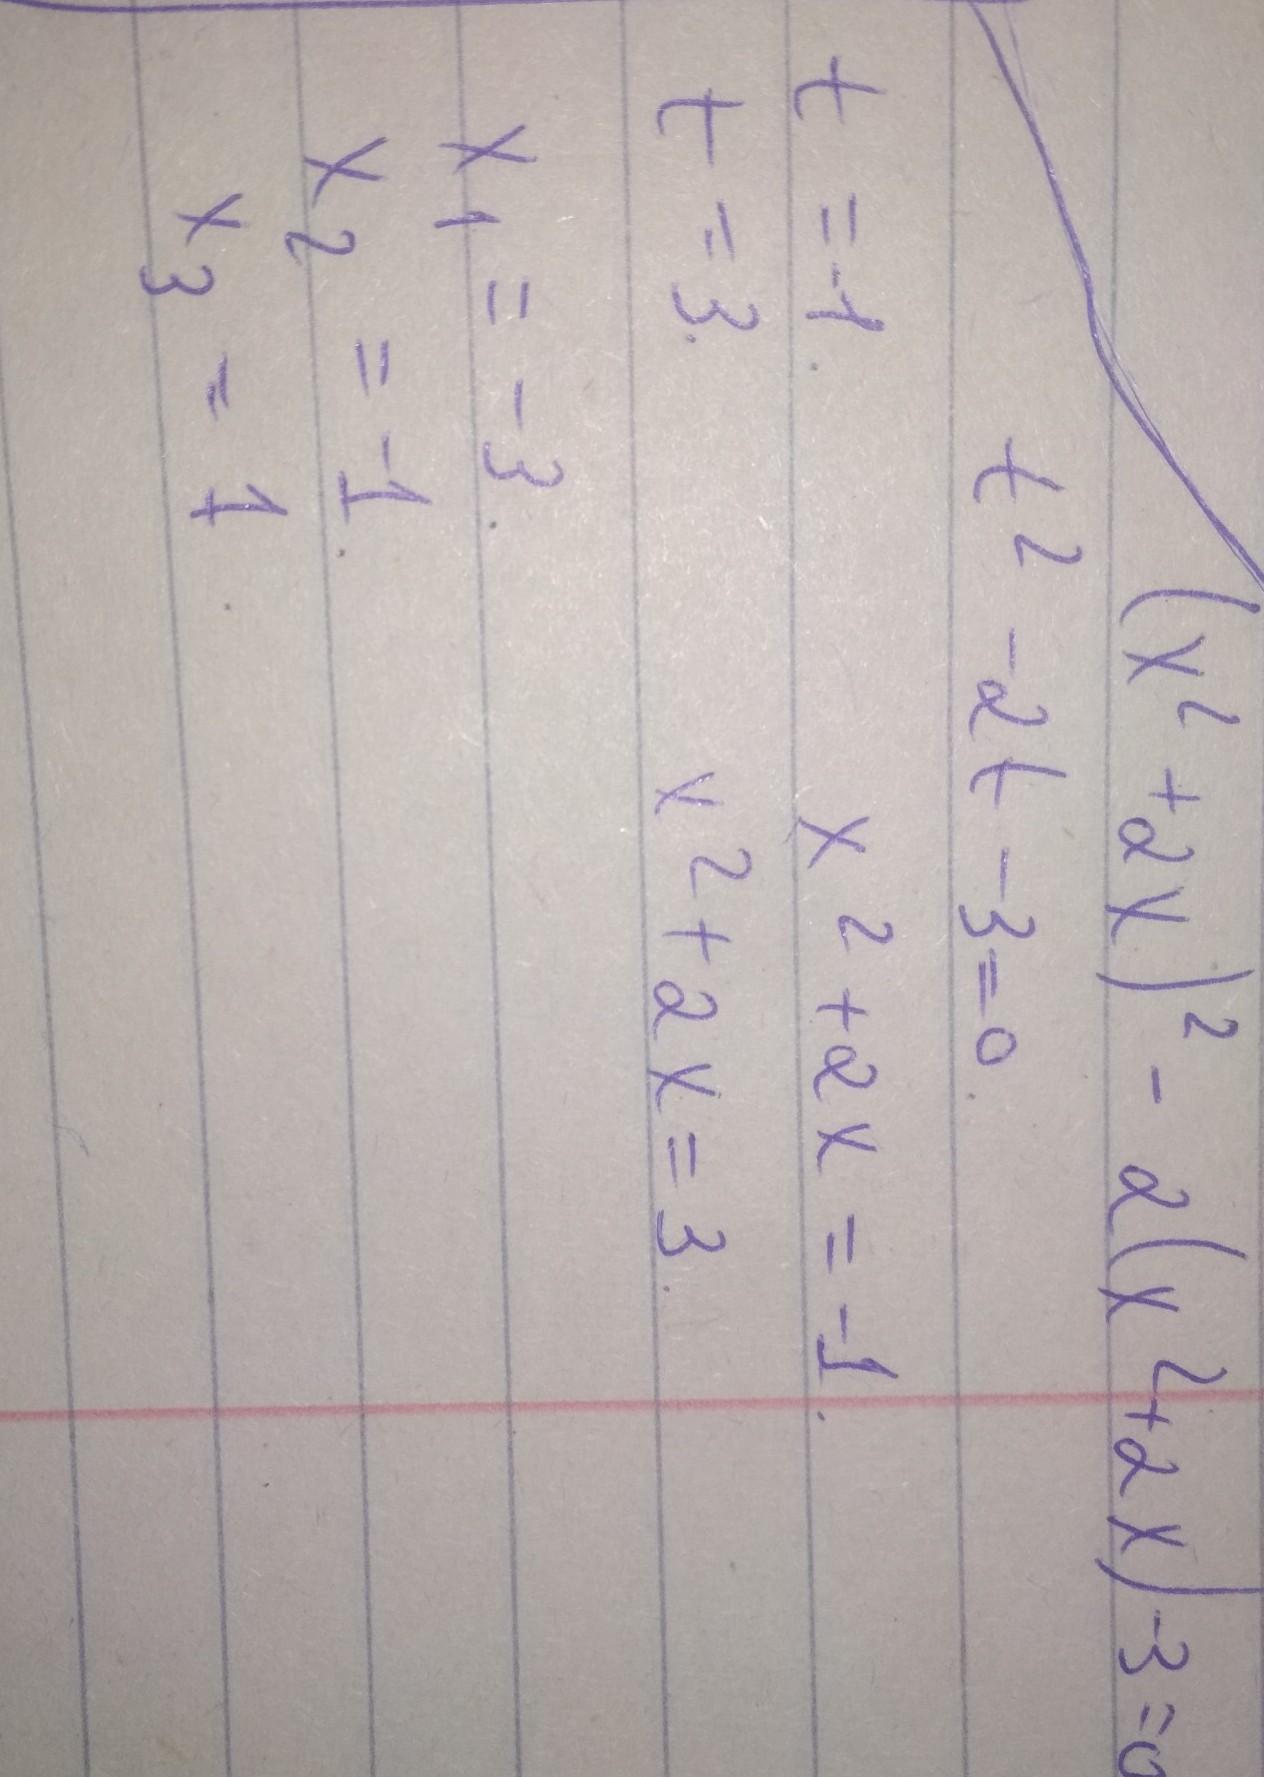 (x² + 2x)² - 2(x² + 2x) - 3 = 0
t² - 2t - 3 = 0.
t = -1. x² + 2x = -1.
t = 3. x² + 2x = 3.
x1 = -3.
x2 = -1.
x3 = 1.